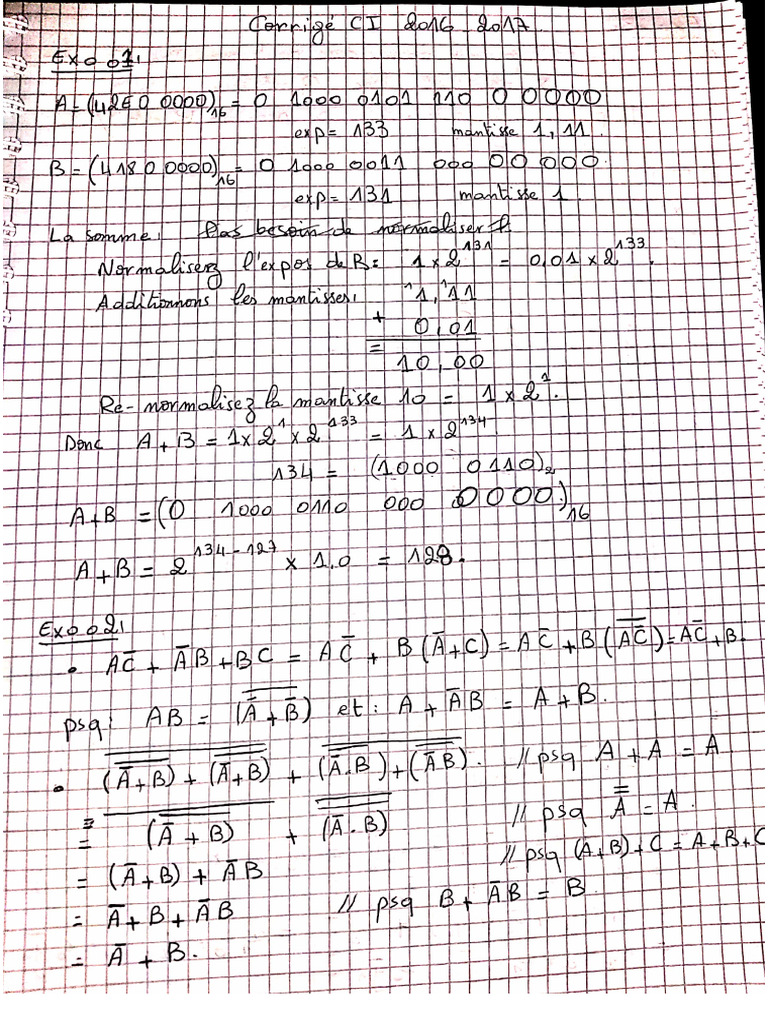 Corrigé CI 2016 2017
Exo 01:
A = (42E0 0000)₁₆ = 0 1000 0101 110 0 0000
exp = 133 mantisse 1,11
B = (4180 0000)₁₆ = 0 1000 0011 000 00 000
exp = 131 mantisse 1
La somme: Pas besoin de normaliser
Normalisez l'expos de B: 1 × 2¹³¹ = 0,01 × 2¹³³.
Additionnons les mantisses: 1,11
+ 0,01
= 10,00
Re-normalisez la mantisse 10 = 1 × 2¹.
Donc A + B = 1 × 2¹ × 2¹³³ = 1 × 2¹³⁴
134 = (1000 0110)₂
A+B = (0 1000 0110 000 00000)₁₆
A + B = 2¹³⁴⁻¹²⁷ × 1,0 = 128.
Exo 02:
• AC̅ + A̅B + BC = AC̅ + B(A̅ + C) = AC̅ + B(\overline{AC̅}) = AC̅ + B.
psq: AB = \overline{(A̅ + B̅)} et: A + A̅B = A + B.
• \overline{\overline{(A̅+B)} + \overline{(A̅+B)}} + \overline{\overline{(A̅.B)} + \overline{(A̅B)}}. // psq A + A = A
= \overline{\overline{(A̅ + B)}} + \overline{\overline{(A̅.B)}} // psq \overline{A̅} = A.
= (A̅ + B) + A̅B // psq (A+B)+C = A+B+C
= A̅ + B + A̅B // psq B + A̅B = B
= A̅ + B.